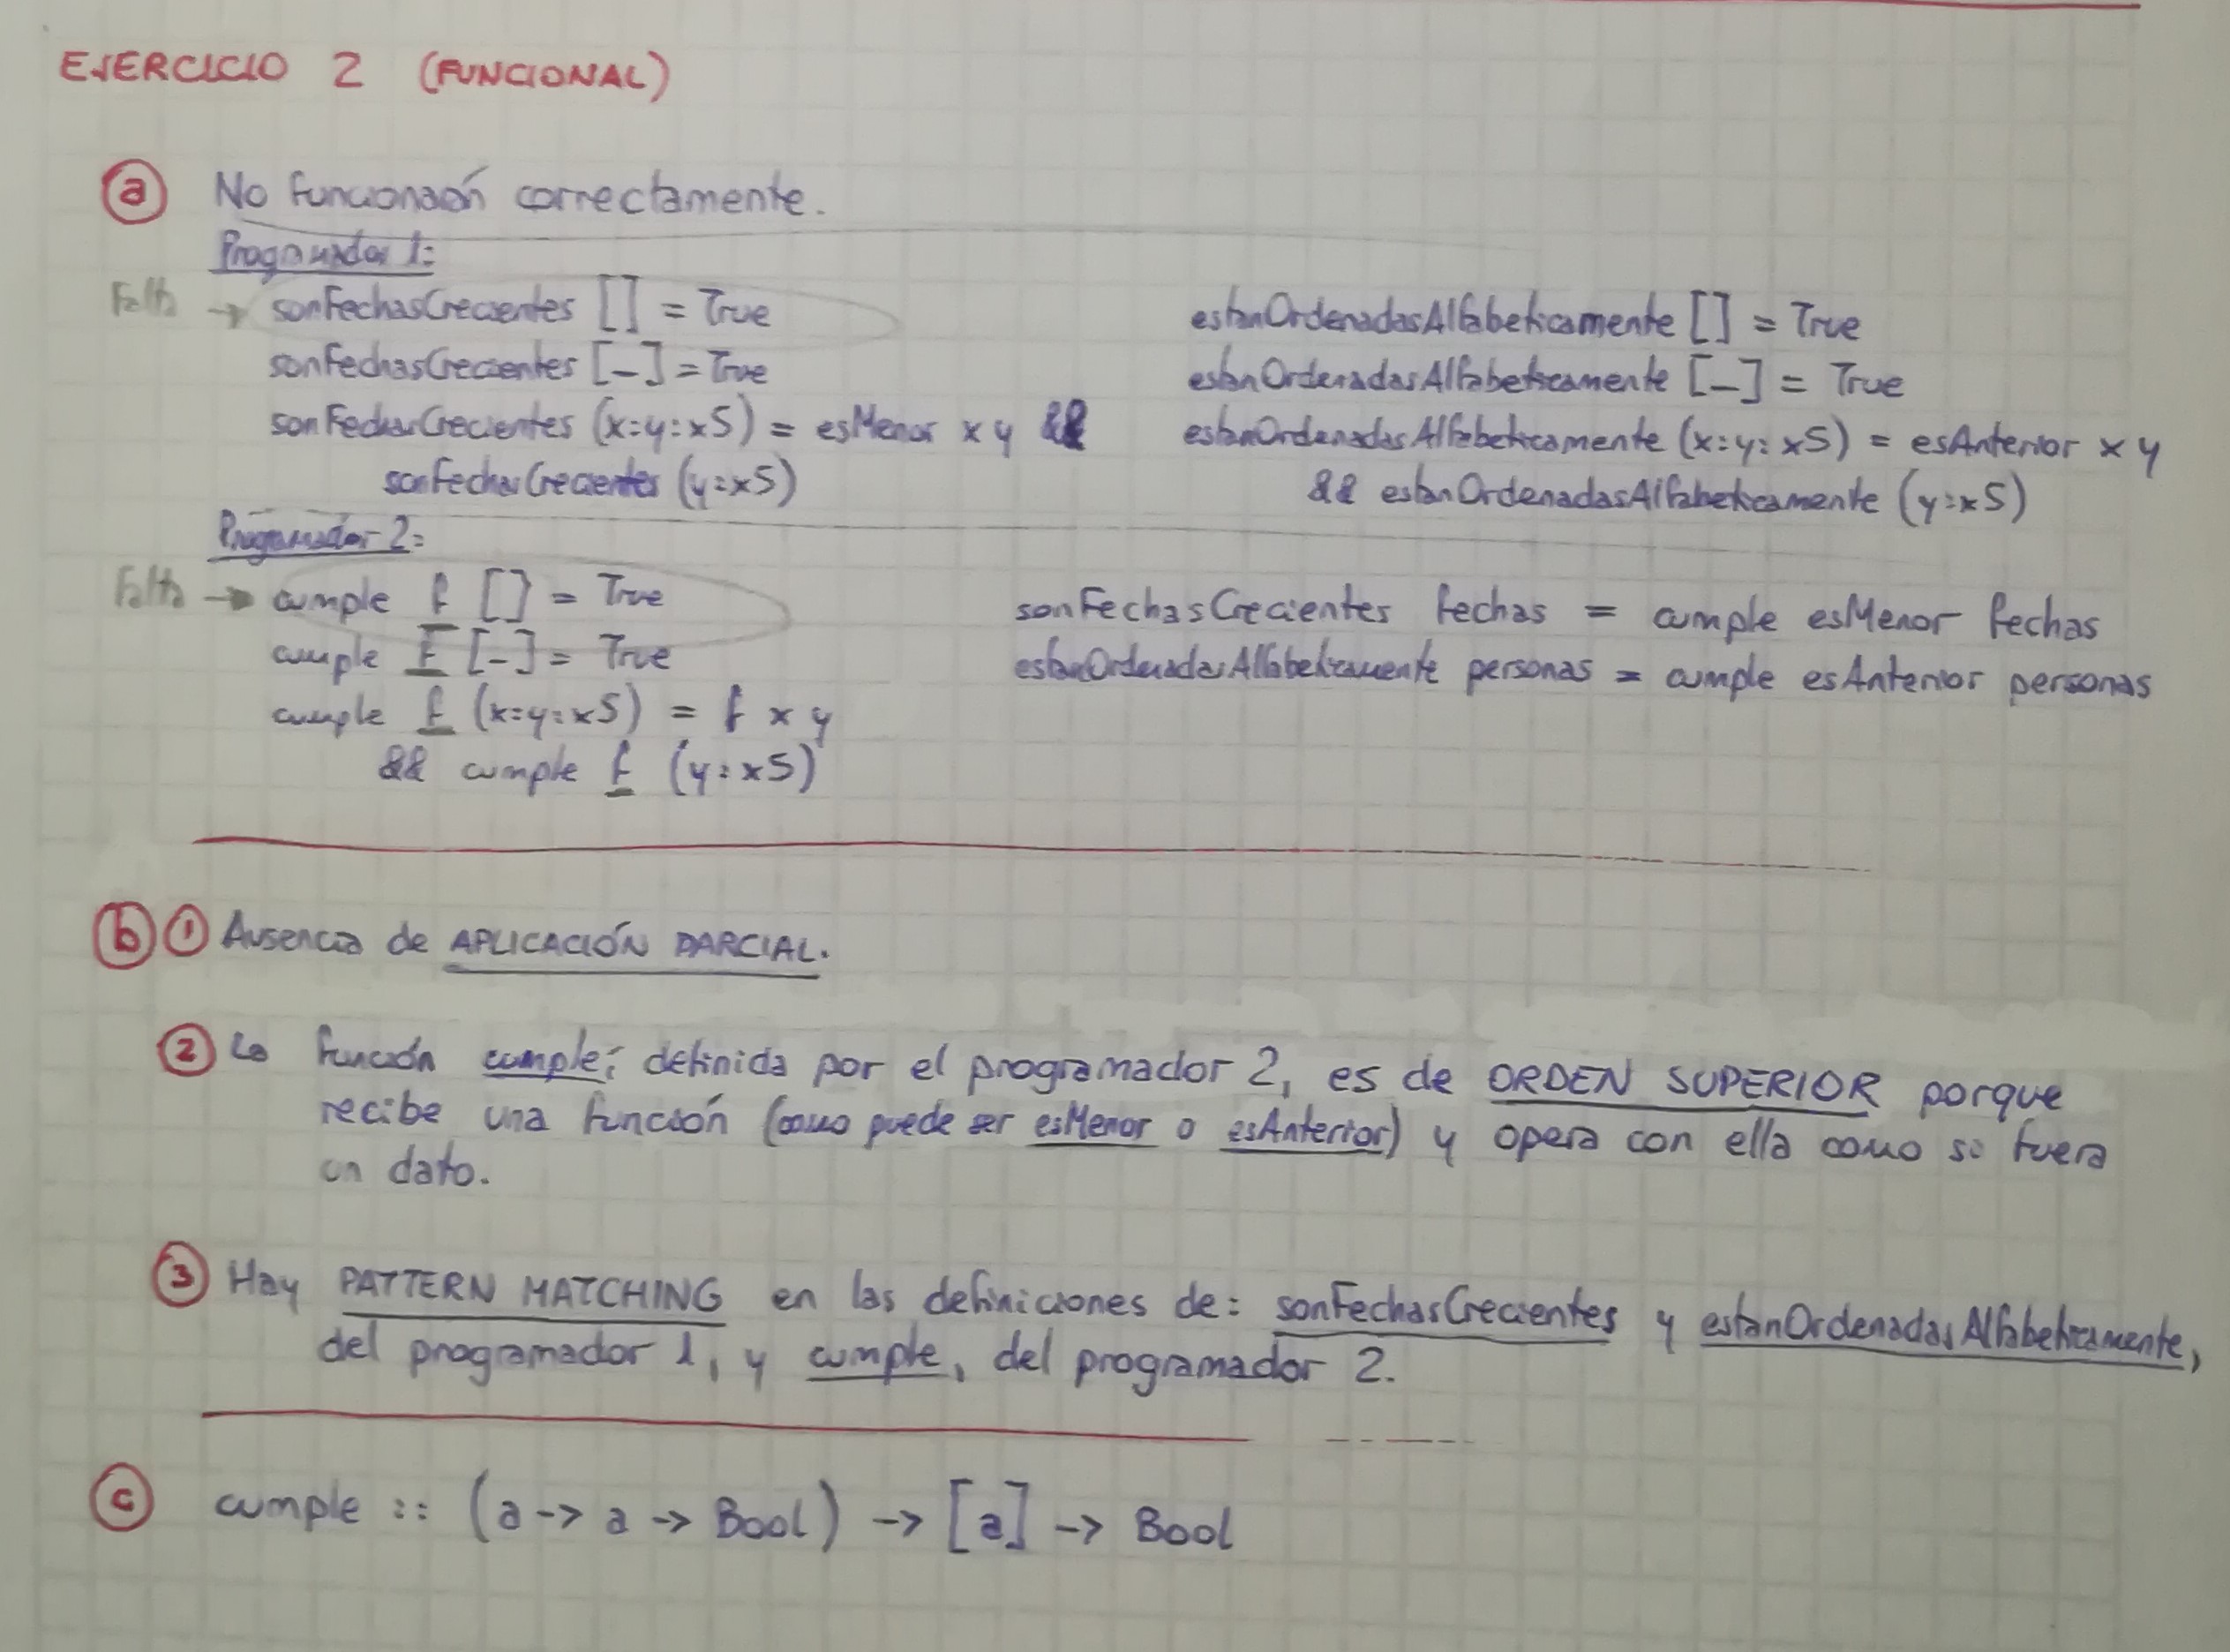 EJERCICIO 2 (FUNCIONAL)
a No funcionarán correctamente.
Programador 1:
Falta → sonFechasCrecientes [] = True
sonFechasCrecientes [_] = True
sonFechasCrecientes (x:y:xS) = esMenor x y &&
sonFechasCrecientes (y:xS)
estanOrdenadasAlfabeticamente [] = True
estanOrdenadasAlfabeticamente [_] = True
estanOrdenadasAlfabeticamente (x:y:xS) = esAnterior x y
&& estanOrdenadasAlfabeticamente (y:xS)
Programador 2:
Falta → cumple f [] = True
cumple f [_] = True
cumple f (x:y:xS) = f x y
&& cumple f (y:xS)
sonFechasCrecientes fechas = cumple esMenor fechas
estanOrdenadasAlfabeticamente personas = cumple esAnterior personas
b 1 Ausencia de APLICACIÓN PARCIAL.
2 La función cumple, definida por el programador 2, es de ORDEN SUPERIOR porque
recibe una función (como puede ser esMenor o esAnterior) y opera con ella como si fuera
un dato.
3 Hay PATTERN MATCHING en las definiciones de: sonFechasCrecientes y estanOrdenadasAlfabeticamente,
del programador 1, y cumple, del programador 2.
c cumple :: (a -> a -> Bool) -> [a] -> Bool